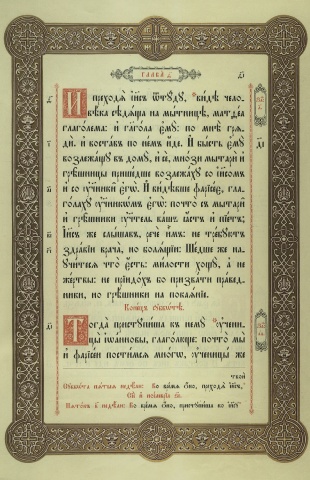 ГЛАВА
И преходѧ і҆и҃съ ѿтꙋ́дꙋ, ви́дѣ чело-
вѣ́ка сѣдѧ́ща на мы́тницѣ, матѳе́а
глаго́лема: и҆ гл҃го́ла є҆мꙋ̀: по мнѣ̀ грѧ-
дѝ. и҆ воста́въ по не́мъ и҆́де. И҆ бы́сть є҆мꙋ̀
возлежа́щꙋ въ домꙋ̀, и҆ сѐ, мно́зи мытарѝ и҆
грѣ̑шницы прише́дше возлежа́хꙋ со і҆и҃сомъ
и҆ со ᲂу҆чн҃ки̑ є҆гѡ̀. И҆ ви́дѣвше фарісе́є, гла-
го́лахꙋ ᲂу҆чн҃кѡ́мъ є҆гѡ̀: почто̀ съ мытарѝ
и҆ грѣ̑шники ᲂу҆чи́тель ва́шъ ꙗ҆́стъ и҆ пїе́тъ;
І҆и҃съ же слы́шавъ, речѐ и҆̀мъ: не тре́бꙋютъ
здра́вїи врача̀, но болѧ́щїи: Ше́дше же на-
ᲂучи́тесѧ что̀ є҆́сть: ми́лости хощꙋ̀, а҆ не
же́ртвы: не прїидо́хъ бо призва́ти пра́вед-
ники, но грѣ̑шники на покаѧ́нїе.
Коне́цъ сꙋббѡ́тѣ.
Тогда̀ пристꙋпи́ша къ немꙋ̀ ᲂу҆чени-
цы̀ і҆ѡа́ннѡвы, глаго́люще: почто̀ мы̀
и҆ фарісе́є пости́мсѧ мно́гѡ, ᲂу҆ченицы́ же
твоѝ
Сꙋббѡ́та пѧ́таѧ недѣ́ли: Во вре́мѧ ѻ҆́но, преходѧ̀ і҆и҃съ,
Пѧто́къ недѣ́ли: Во вре́мѧ ѻ҆́но, пристꙋпи́ша ко і҆и҃сꙋ